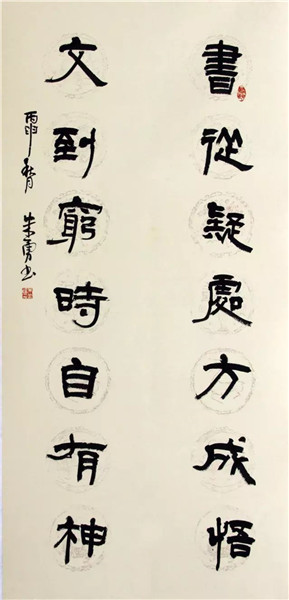 書從疑處方成悟
文到窮時自有神
丙申
朱勇书